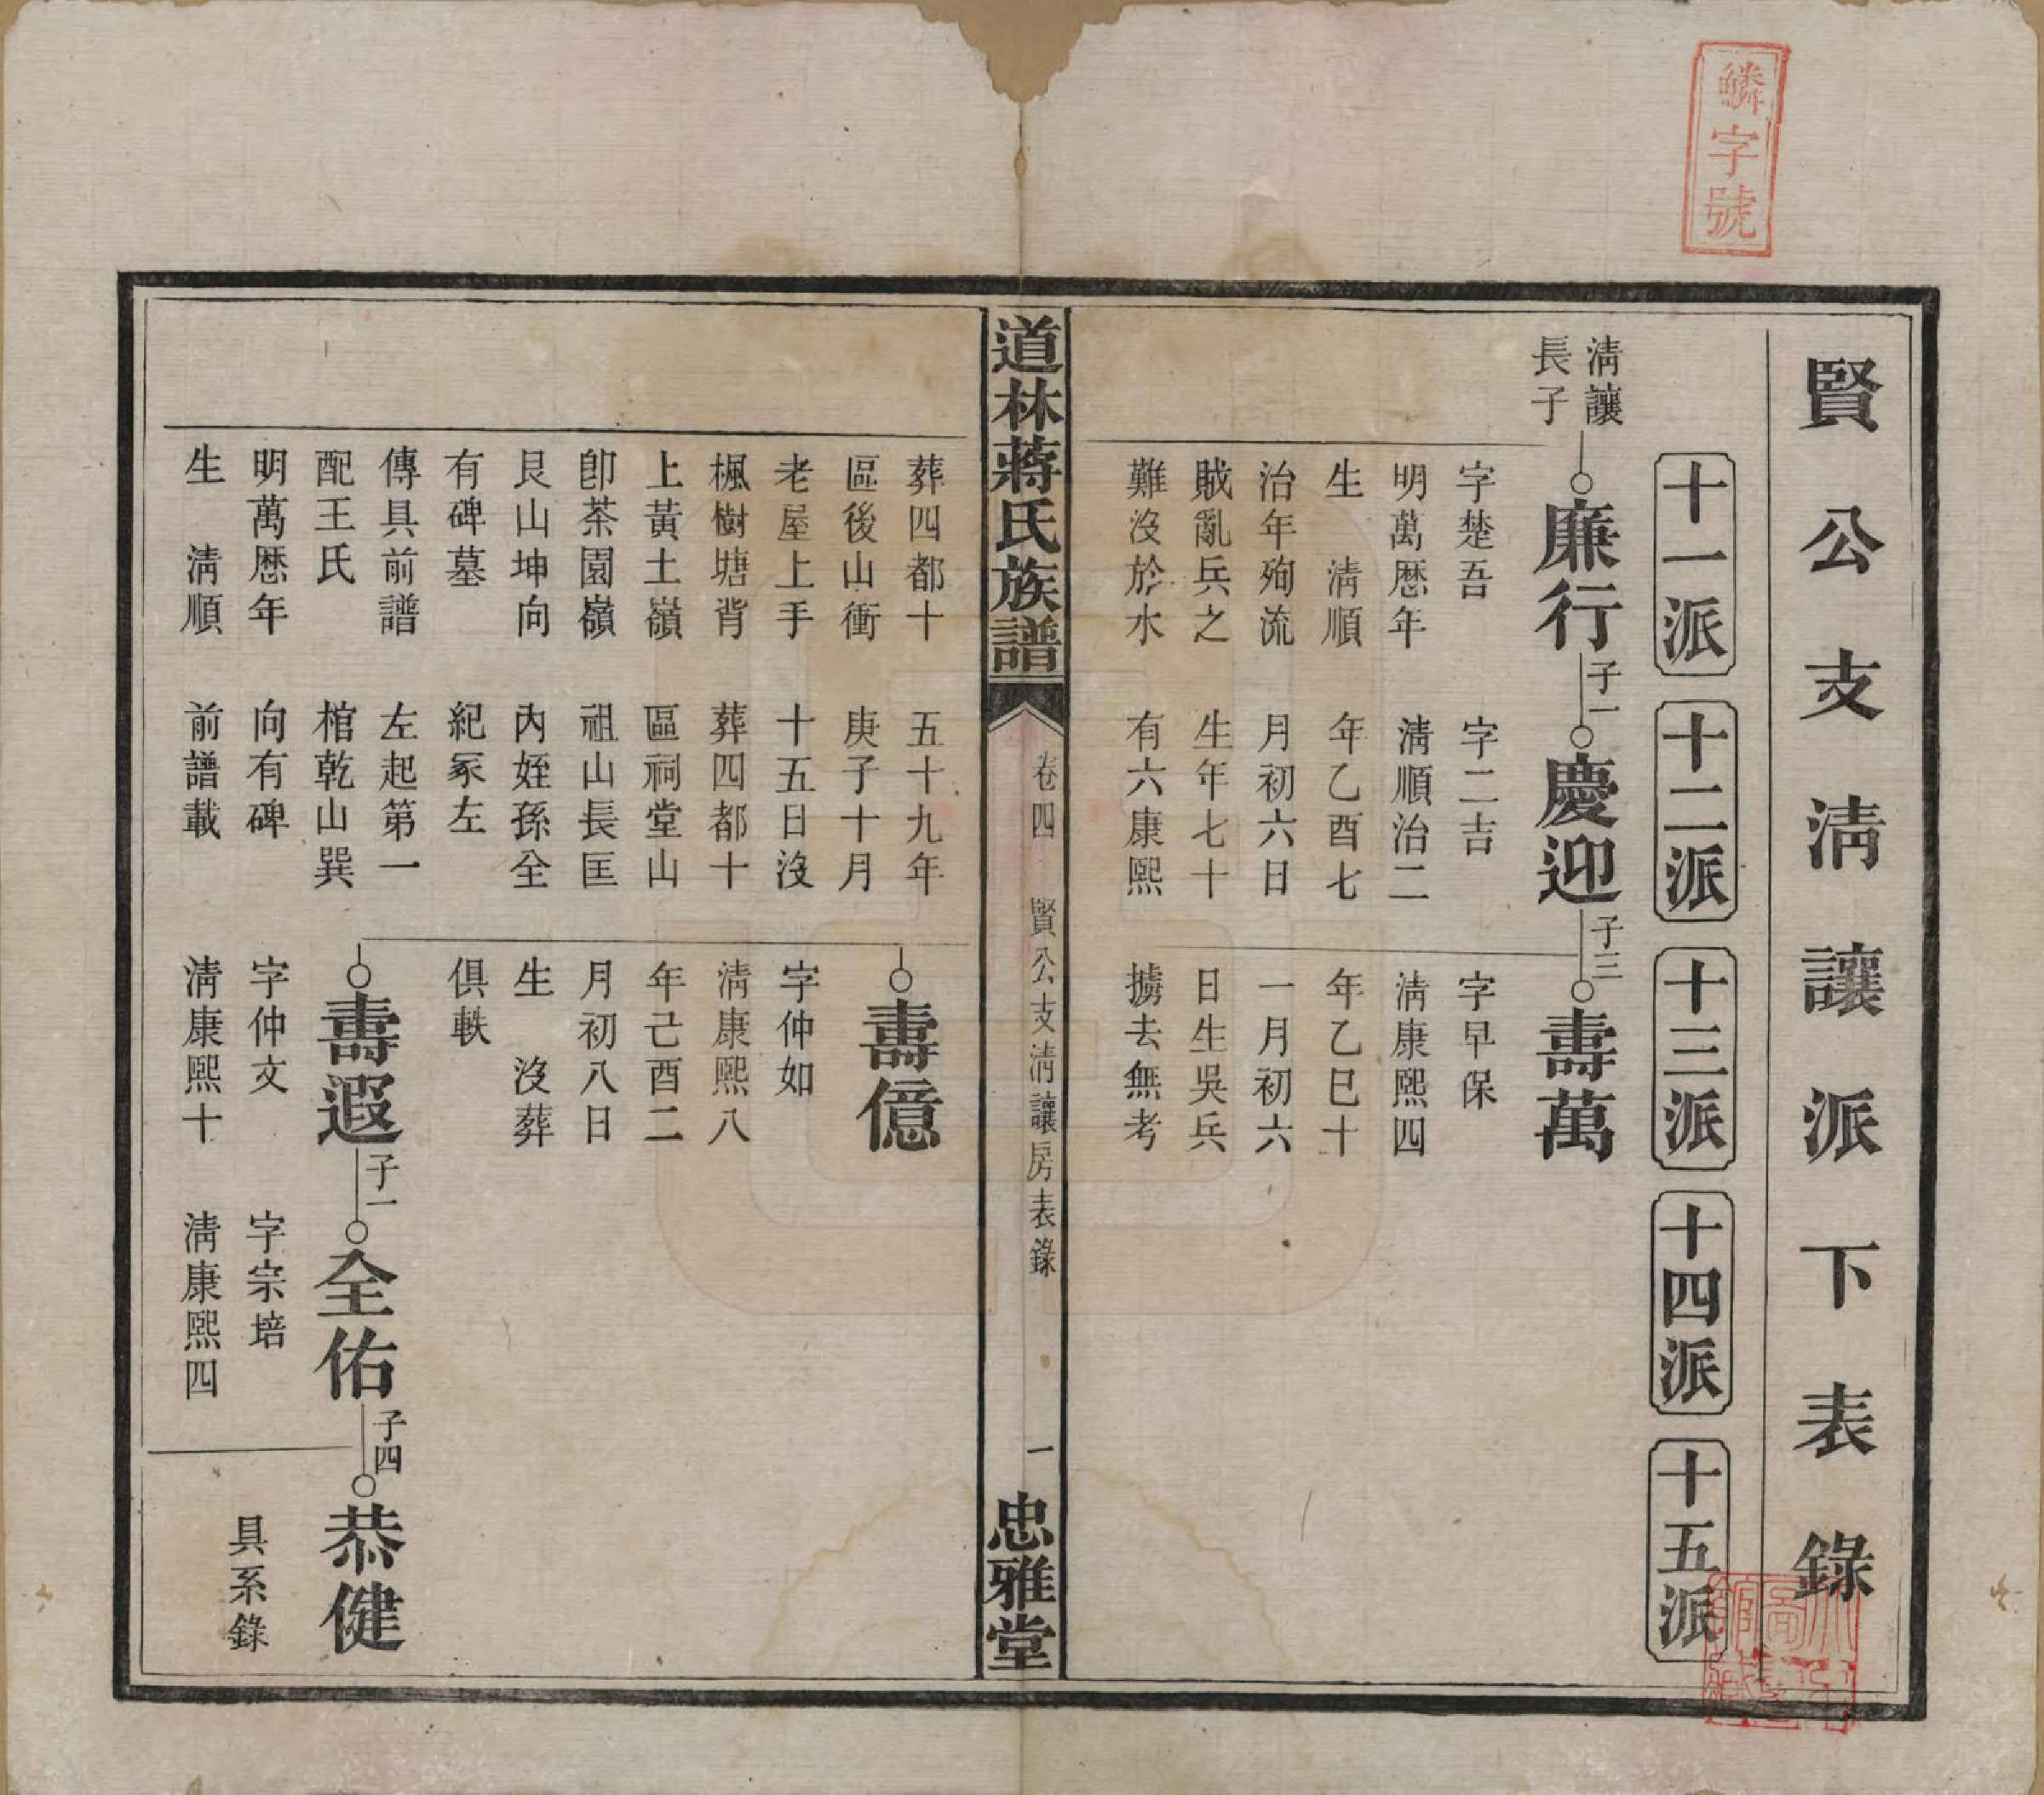 鱗字號
賢公支淸讓派下表錄
十一派
十二派
十三派
十四派
十五派
淸讓
長子
廉行
子一
慶迎
子三
壽萬
字楚吾
明萬曆年
生　淸順
治年殉流
賊亂兵之
難沒於水
字二吉
淸順治二
年乙酉七
月初六日
生年七十
有六康熙
字早保
淸康熙四
年乙巳十
一月初六
日生吳兵
擄去無考
道林蔣氏族譜
卷四
賢公支淸讓房表錄
一
忠雅堂
葬四都十
區後山衝
老屋上手
楓樹塘背
上黃土嶺
卽茶園嶺
艮山坤向
有碑墓
傳具前譜
配王氏
明萬曆年
生　淸順
五十九年
庚子十月
十五日沒
葬四都十
區祠堂山
祖山長匡
內姪孫全
紀冢左
左起第一
棺乾山巽
向有碑
前譜載
壽億
字仲如
淸康熙八
年己酉二
月初八日
生　沒葬
俱軼
壽遐
子一
全佑
子四
恭健
字仲文
淸康熙十
字宗培
淸康熙四
具系錄